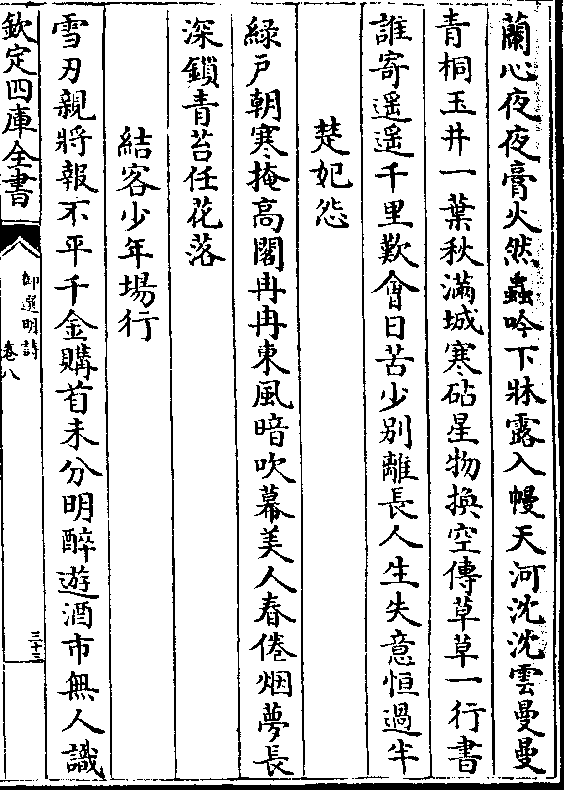 蘭心夜夜膏火然蟲吟下牀露入幔天河沈沈雲曼曼
青桐玉井一葉秋滿城寒砧星物換空傳草草一行書
誰寄遥遥千里歎會日苦少别離長人生失意恒過半
楚妃怨
緑戸朝寒掩高閣冉冉東風暗吹幕美人春倦烟夢長
深鎖青苔任花落
結客少年場行
雪刃親將報不平千金購首未分明醉遊酒市無人識
欽定四庫全書
御選明詩
卷八
三十三